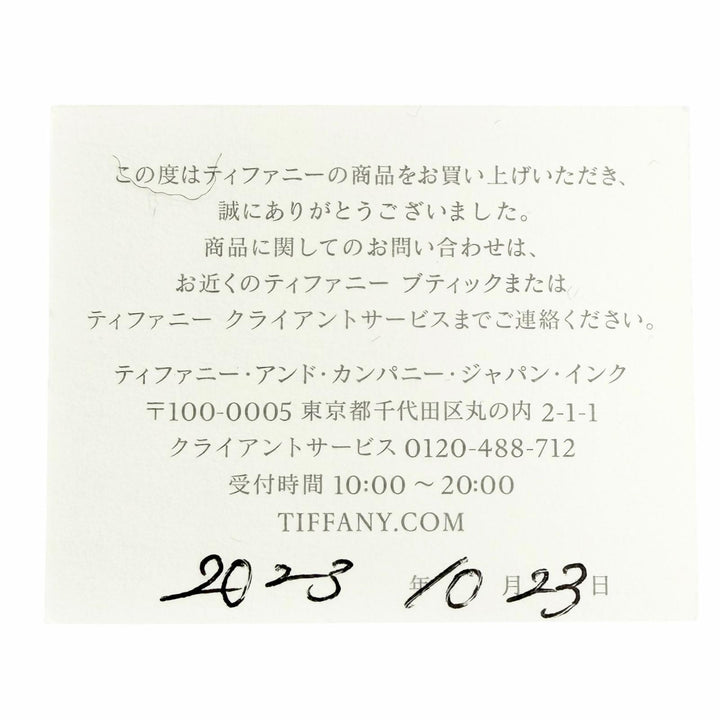 この度はティファニーの商品をお買い上げいただき、
誠にありがとうございました。
商品に関してのお問い合わせは、
お近くのティファニー ブティックまたは
ティファニー クライアントサービスまでご連絡ください。
ティファニー・アンド・カンパニー・ジャパン・インク
〒100-0005 東京都千代田区丸の内 2-1-1
クライアントサービス 0120-488-712
受付時間 10:00 〜 20:00
TIFFANY.COM
2023 年 10 月 23 日